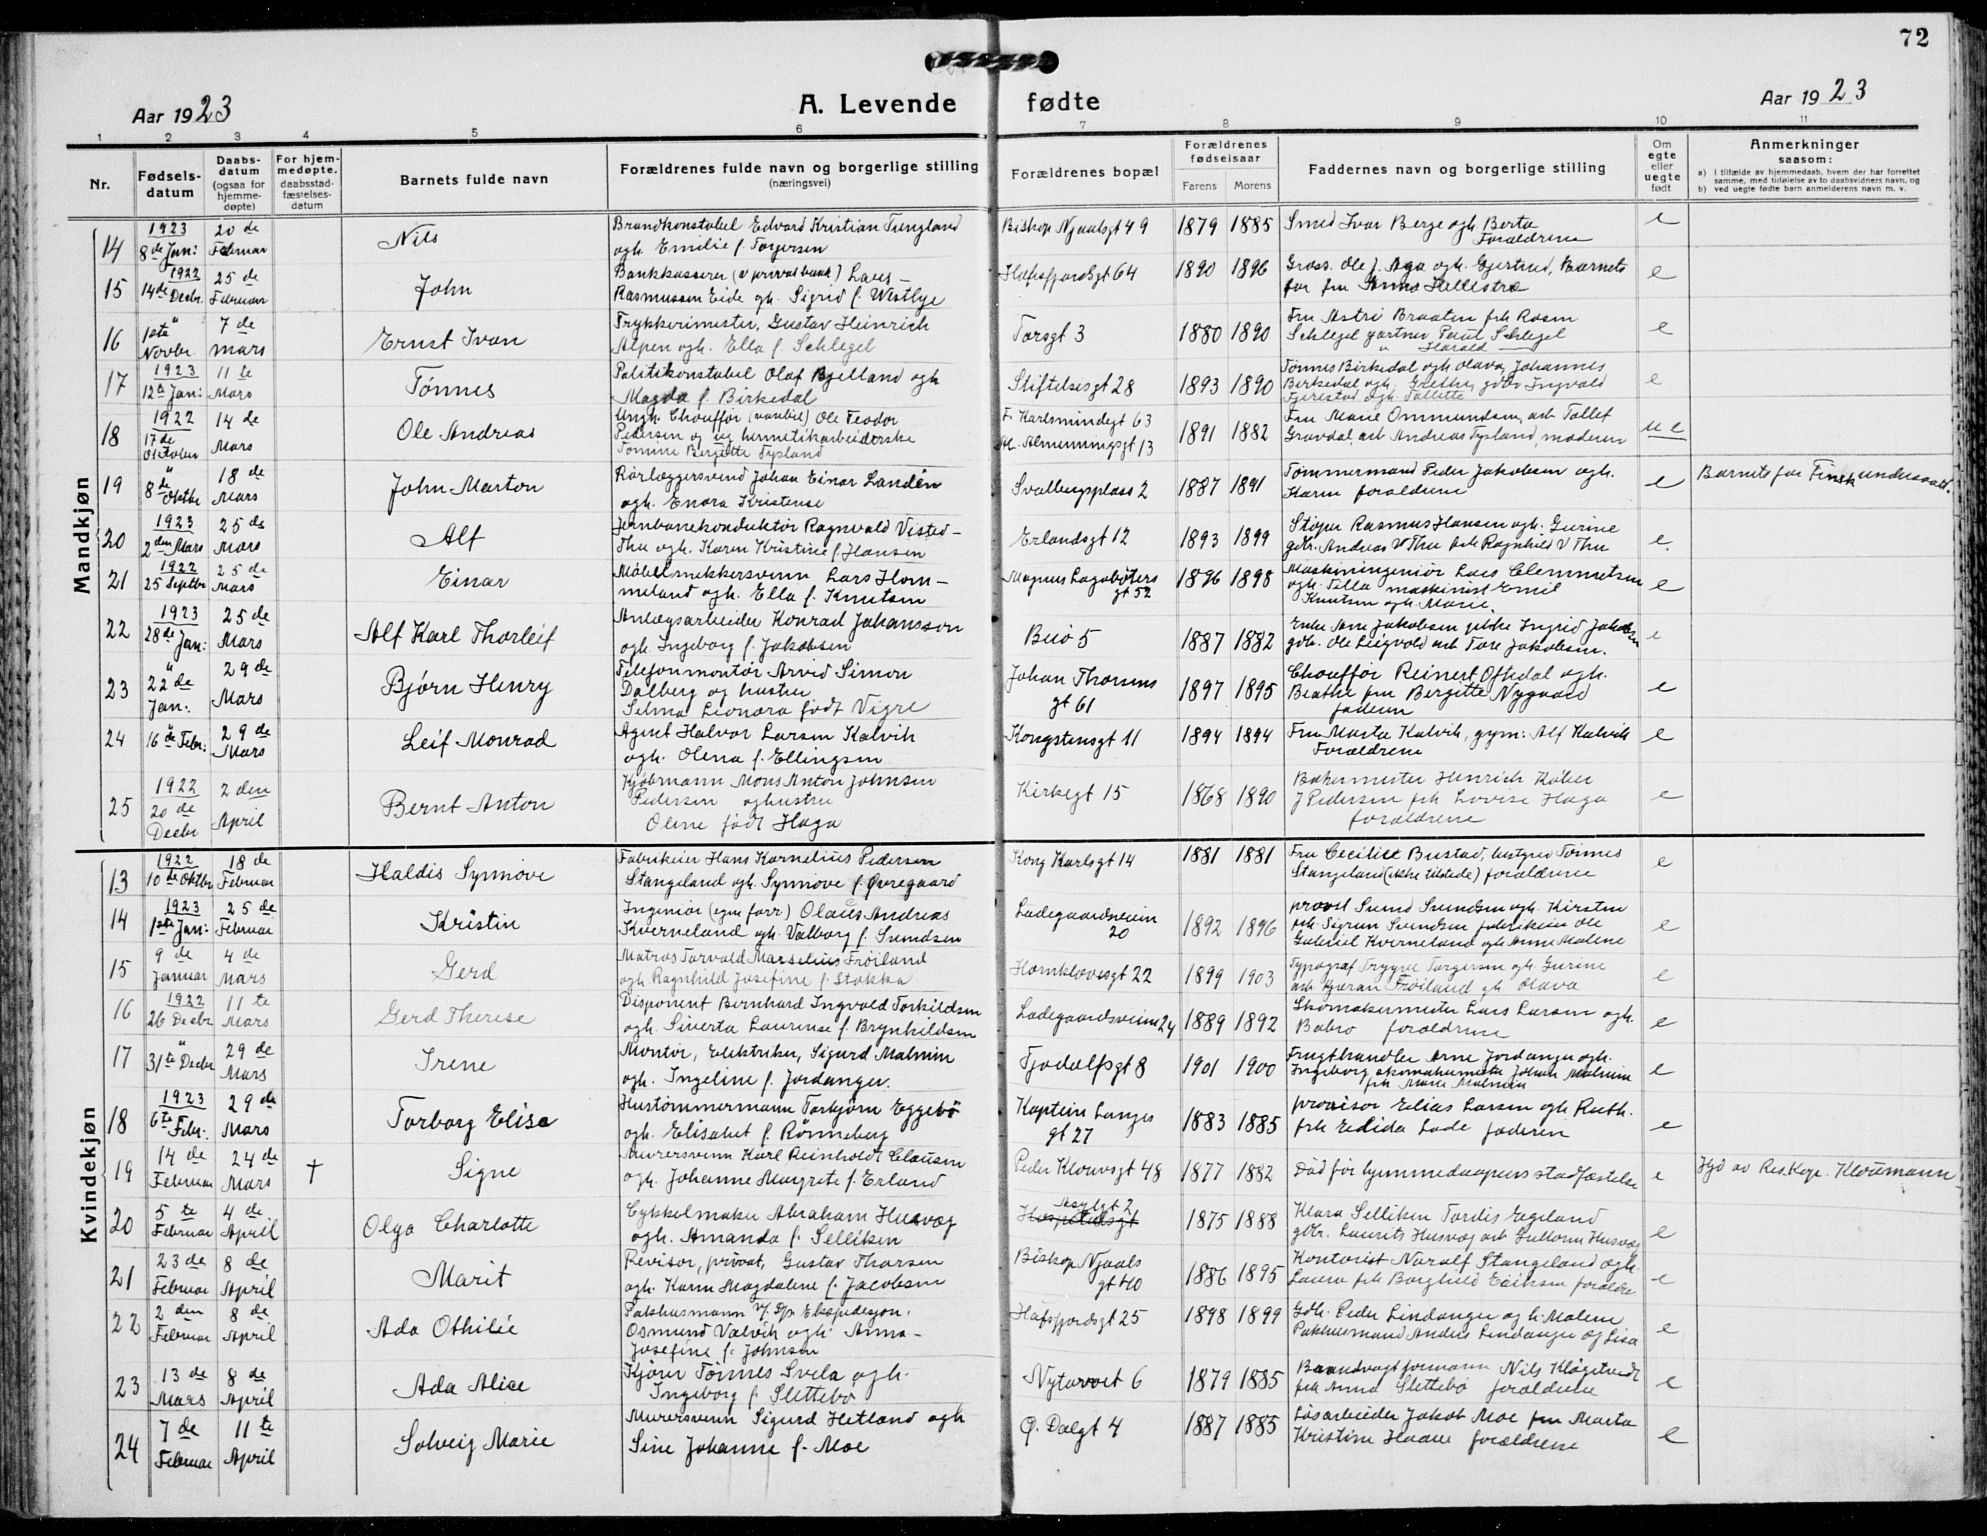 72
Aar 1923
A. Levende fødte
Aar 1923
1 2 3 4 5 6 7 8 9 10 11
Nr.
Fødsels-
datum
Daabs-
datum
(ogsaa for
hjemme-
døpte)
For hjem-
medøpte.
daabsstad-
fæstelses-
datum
Barnets fulde navn
Forældrenes fulde navn og borgerlige stilling
(næringsvei)
Forældrenes bopæl
Forældrenes
fødselsaar
Farens Morens
Faddernes navn og borgerlige stilling
Om
egte
eller
uegte
født
Anmerkninger
saasom:
a) I tilfælde av hjemmedaab, hvem der har forrettet
samme, med tilføielse av to daabsvidners navn, og
b) ved uegte fødte barn anmelderens navn m. v.
Mandkjøn
14 1923 8de Jan: 20de Februar Nils
Brandkonstabel Edvard Kristian Tungland
ogh. Emilie f. Torgersen
Biskop Njaalsgt 49 1879 1885
Smed Ivar Berge ogh. Berta
Forældrene e
15 1922 14de Decbr. 25de Februar John
Bankkasserer (v privatbank) Lars
Rasmussen Eide gh. Sigrid f. Westlye
Hafrsfjordsgt 64 1890 1896
Gross. Ole J. Aga ogh. Gjertrud, Barnets
far fru Anna Hellestrø e
16 " 1ste Novbr. 7de mars Ernst Ivan
Trykkerimester, Gustav Heinrich
Alpen ogh. Ella f. Schlegel
Torsgt 3 1880 1890
Fru Astri Braaten frk Rosm
Schlegel gartner Paul Schlegel
" Harald e
17 1923 12te Jan: 11te Mars Tønnes
Politikonstabel Olaf Bjelland ogh
Magda f. Birkedal
Stiftelsesgt 28 1893 1890
Tønnes Birkedal ogh Olava, Johannes
Birkedal ogh. Grethe, gdbr Ingvald
Fjerestad ogh. Tollette e
18 1922 17de Oktober 14de Mars Ole Andreas
Ungk. Chauffør (vanbil) Ole Teodor
Pedersen og ug hermetikarbeiderske
Tomine Bergitte Tysland
F. Karlsmindegt 63
M. Almenningsgt 13 1891 1882
Fru Marie Ommundsen, arb Tollef
Gravdal, arb Andreas Tysland, moderen u e
19 " 8de Oktbr 18de Mars John Marton
Rørlæggersvend Johan Einar Landén
ogh. Enora Kristense
Svalbergsplass 2 1887 1891
Tømmermand Peder Jakobsen ogh.
Karen forældrene e
Barnets far Finsk undersaatt.
20 1923 2den Mars 25de Mars Alf
Jernbanekonduktør Ragnvald Visted-
Thu ogh. Karen Kristine f Hansen
Erlandsgt 12 1893 1899
Støper Rasmus Hansen ogh. Gurine
gdbr. Andreas V Thu frk Ragnhild V Thu e.
21 1922 25 Septbr 25de Mars Einar
Møbelsnekkersvenn Lars Hom-
meland ogh. Ella f. Knutsen
Magnus Lagabøters
gt 52 1896 1898
Maskiningeniør Lars Clemmetsen
ogh. Tilla maskinist Emil
Knutsen ogh. Marie. e
22 1923 28de Jan: 25de Mars Alf Karl Thorleif
Anlægsarbeider Konrad Johansson
ogh. Ingeborg f. Jakobsen
Buø 5 1887 1882
Enke Ane Jakobsen pike Ingrid Jakobsen
gdbr. Ole Leigvold arb Tore Jakobsen. e
23 " 22de Jan: 29de Mars Bjørn Henry
Telefonmontør Arvid Simon
Dalberg og hustru
Selma Leonora født Vigre
Johan Thorsens
gt 61 1897 1895
Chauffør Reinert Oftedal ogh.
Beathe fru Bergitte Nygaard
faderen e
24 16de Febr: 29de Mars Leif Monrad
Agent Halvor Larsen Kalvik
ogh. Olena f. Ellingsen
Kongstensgt 11 1894 1894
Fru Marta Kalvik, gym: Alf Kalvik
Forældrene e
25 1922 20de Decbr 2den April Bernt Anton
Kjøbmann Mons Anton Johnsen
Pedersen oghustru
Oline født Haga
Kirkegt 15 1868 1890
Bakermester Henrich Kaber
J Pedersen frk Lovise Haga
forældrene e
Kvindekjøn
13 1922 10de Oktbr 18de Februar Haldis Synnøve
Fabrikeier Hans Kornelius Pedersen
Stangeland ogh. Synnøve f. Øvregaard
Kong Karlsgt 14 1881 1881
Fru Cecilie Bustad, bestyrer Tønnes
Stangeland (ikke tilstede) forældrene e
14 1923 1ste Jan: 25de Februar Kristin
Ingeniør (egen forr.) Olaus Andreas
Kverneland ogh. Valborg f. Svendsen
Ladegaardsveien
20 1892 1896
provst Svend Svendsen ogh. Kirsten
frk. Sigrun Svendsen fabrikeier Ole
Gabriel Kverneland ogh Anne Malene e
15 9de Januar 4de Mars Gerd
Matros Torvald Marselius Frøiland
ogh Ragnhild Josefine f. Stokka
Homkløvesgt 22 1899 1903
Typograf Trygve Torgersen ogh. Gurine
arb. Gjeran Frøiland gh Olava e
16 1922 26 Decbr 11te Mars Gerd Therese
Disponent Bernhard Ingvald Torkildsen
ogh. Siverta Laurense f. Brynhildsen
Ladegaardsveien 24 1889 1892
Skomakermester Lars Larsen ogh.
Babro forældrene e
17 " 31te Decbr 29de Mars Irene
Montør, Elektriker, Sigurd Malmin
ogh. Ingeline f. Jordanger.
Tjodolfsgt 8 1901 1900
Frugthandler Arne Jordanger ogh.
Ingeborg skomakermester Johan Malmin
frk Marie Malmin e
18 1923 6te Febr. 29de Mars Torborg Elise
Hustømmermann Torbjørn Eggebø
ogh. Elisabet f. Rønneberg
Kaptein Langes
gt 27 1883 1885
provisor Elias Larsen ogh Ruth.
frk Edida Lode faderen e
19 14de Februar 24de Mars † Signe
Murersvenn Karl Reinholdt Clausen
ogh. Johanne Margrete f. Erland
Peder Klouwsgt 48 1877 1882
Død før hjemmedaapens stadfæstelse e
Hjd av Res.Kap. Kloumann
20 5te Februar 4de April Olga Charlotte
Cykkelmaker Abraham Husvæg
ogh. Amanda f. Selliken
Asylgt 2
Hospitalsgt 1875 1888
Klara Selliken Tordis Egeland
gdbr. Laurits Husvæg arb Guttorm Husvæg e
21 23de Februar 8de April Marit
Revisor, privat, Gustav Thorsen
ogh. Karen Magdalene f. Jacobsen
Biskop Njaals
gt 40 1886 1895
Kontorist Naralf Stangeland ogh.
Laura frk Borghild Eriksen forældre e
22 2den Februar 8de April Ada Othilie
Pakhusmann v/ D/p Ekspedisjon.
Osmund Valvik ogh. Anna-
Josefine f. Johnsen
Hafrsfjordsgt 25 1898 1899
Gdb. Peder Lindanger og h. Malene
Pakhusmand Anders Lindanger og Lisa e
23 13de Mars 8de April Ada Alice
Kjører Tønnes Svela ogh.
Ingeborg f. Slettebø
Nytorvet 6 1879 1885
Brandvagtformann Nils Kløgetvedt
frk Anna Slettebø forældrene e
24 7de Februar 11te April Solveig Marie
Murersvenn Sigurd Hetland ogh
Sine Johanne f. Moe
Ø. Dalgt 4 1887 1885
Løsarbeider Jakob Moe fru Marta
Kristine Haaue forældrene e